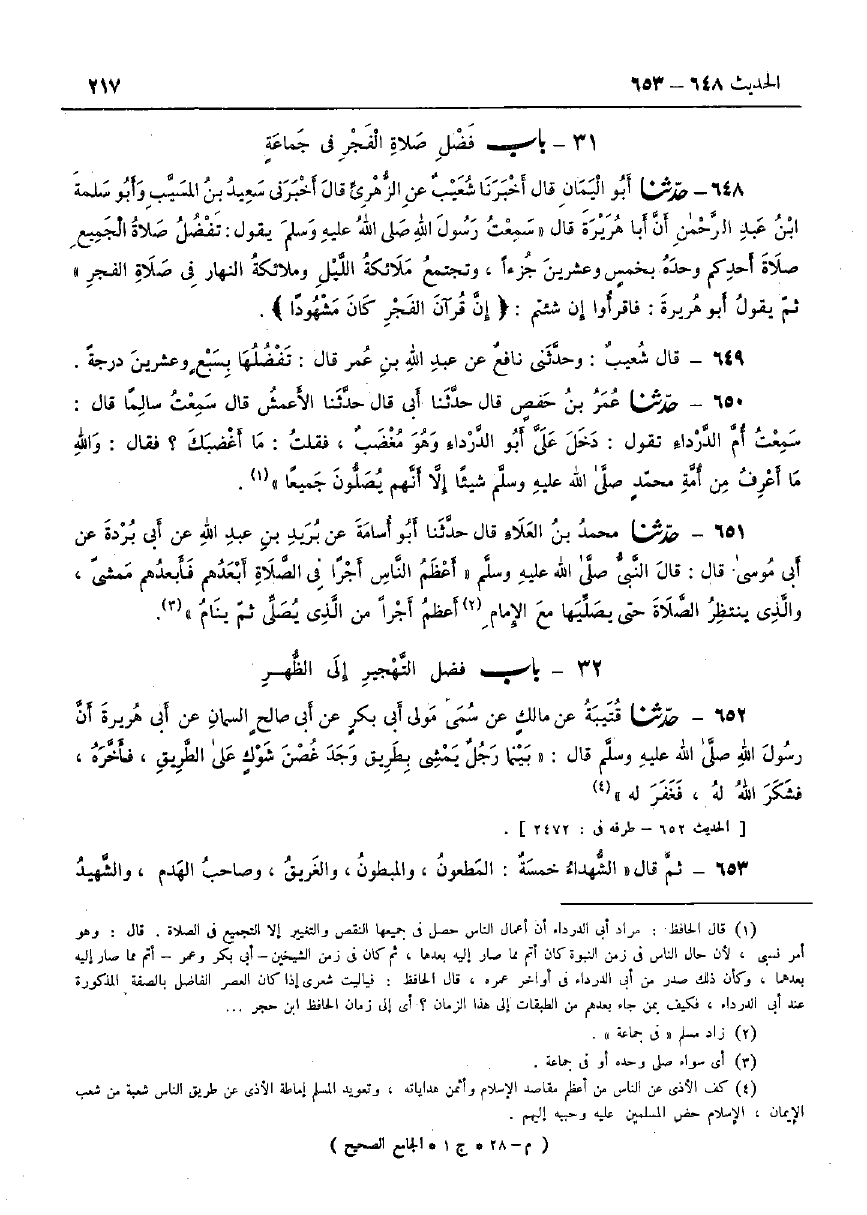 الحديث ٦٤٨ – ٦٥٣
٢١٧
٣١ – باب فَضْلِ صَلَاةِ الْفَجْرِ فى جَمَاعَةٍ
٦٤٨ – حدّثنا أَبُو الْيَمَانِ قال أَخْبَرَنَا شُعَيْبٌ عنِ الزُّهْرِىِّ قالَ أَخْبَرَنى سَعِيدُ بنُ المسَيَّبِ وَأَبُو سَلمةَ
ابْنُ عَبدِ الرَّحْمٰنِ أَنَّ أَبا هُرَيْرَةَ قال « سَمِعْتُ رَسُولَ اللهِ صَلى اللهُ عليهِ وَسَلمَ يقول : تَفْضُلُ صَلاةُ الْجَمِيعِ
صلاةَ أحدِكم وحدَهُ بخمسٍ وعشرينَ جُزءاً ، وتجتمعُ مَلَائكةُ اللَّيْلِ وملائكةُ النهار فى صَلَاةِ الفجرِ »
ثمّ يقولُ أبو هُريرةَ : فاقرأُوا إن شئتم : ﴿ إِنَّ قُرآنَ الفَجْرِ كَانَ مَشْهُودًا ﴾ .
٦٤٩ – قال شُعيبٌ : وحدَّثَنى نافعٌ عن عبدِ اللهِ بنِ عُمر قال : تَفْضُلُهَا بِسَبْعٍ وعشرينَ درجةً .
٦٥٠ – حدّثنا عُمَرُ بنُ حَفصٍ قال حدَّثَنَا أبى قال حدَّثَنَا الأَعمشُ قال سَمِعْتُ سالِمًا قال :
سَمِعْتُ أُمَّ الدَّرْداءِ تقول : دَخَلَ عَلَىَّ أَبُو الدَّرْداءِ وَهُوَ مُغْضَبٌ ، فقلتُ : مَا أَغْضبَكَ ؟ فقال : وَاللهِ
مَا أَعْرِفُ مِن أُمَّةِ محمّدٍ صلَّىٰ الله عليهِ وسلَّم شيئًا إِلَّا أَنَّهم يُصَلُّونَ جَميعًا »(١) .
٦٥١ – حدّثنا محمدُ بنُ العَلَاءِ قال حدثَنا أَبُو أُسامَةَ عن بُرَيدِ بنِ عبدِ اللهِ عن أبى بُرْدةَ عن
أبى مُوسىٰ قال : قالَ النَّبىُّ صلَّىٰ الله عليهِ وسلَّم « أَعْظَمُ النَّاسِ أَجْرًا فى الصَّلَاةِ أَبْعَدُهم فَأَبعدُهم مَمْشىً ،
والَّذِى ينتظِرُ الصَّلَاةَ حتى يصَلِّيَها معَ الإِمامِ(٢) أَعظمُ أَجْراً من الَّذِى يُصَلِّى ثمّ ينامُ »(٣).
٣٢ – باب فضل التَّهْجيرِ إِلَى الظُّهرِ
٦٥٢ – حدّثنا قُتَيبَةُ عن مالكٍ عن سُمَىٍّ مَولى أبى بكرٍ عن أبى صالحٍ السمانِ عن أبى هُريرةَ أَنَّ
رسُولَ اللهِ صلَّىٰ الله عليهِ وسلَّم قال : « بَيْنَما رَجُلٌ يَمْشِى بِطَرِيقٍ وَجَدَ غُصْنَ شَوْكٍ عَلىٰ الطَّريقِ ، فأَخَّرَهُ ،
فشَكَرَ اللهُ لهُ ، فَغَفَرَ له »(٤)
[ الحديث ٦٥٢ – طرفه فى : ٢٤٧٢ ] .
٦٥٣ – ثمَّ قال « الشُّهداءُ خمسَةٌ : المَطعونُ ، والمبطونُ ، والغَريقُ ، وصاحبُ الهَدم ، والشَّهيدُ
(١) قال الحافظ : مراد أبى الدرداء أن أعمال الناس حصل فى جميعها النقص والتغيير إلا التجميع فى الصلاة . قال : وهو
أمر نسبى ، لأن حال الناس فى زمن النبوة كان أتم مما صار إليه بعدها ، ثم كان فى زمن الشيخين – أبى بكر وعمر – أتم مما صار إليه
بعدهما ، وكأن ذلك صدر من أبى الدرداء فى أواخر عمره ، قال الحافظ : فياليت شعرى إذا كان العصر الفاضل بالصفة المذكورة
عند أبى الدرداء ، فكيف بمن جاء بعدهم من الطبقات إلى هذا الزمان ؟ أى إلى زمان الحافظ ابن حجر ...
(٢) زاد مسلم « فى جماعة » .
(٣) أى سواء صلى وحده أو فى جماعة .
(٤) كف الأذى عن الناس من أعظم مقاصد الإسلام وأثمن هداياته ، وتعويد المسلم إماطة الأذى عن طريق الناس شعبة من شعب
الإيمان ، الإسلام حض المسلمين عليه وحببه إليهم .
( م – ٢٨ * ج ١ * الجامع الصحيح )